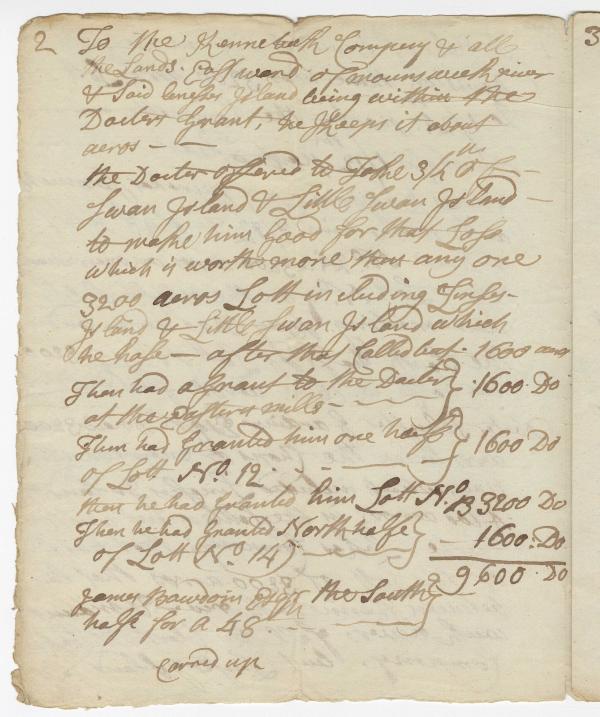 2 To the Kennebeck Company & all
the Lands. Eastward of mounsweek river
& Said Island being within the
Docters Grant, he Keeps it about
acros — —
the Docter offered to Take 3/4th of
Swan Island & Little Swan Island —
to make him Good for that Loss
which is worth more than any one
3200 acros Lott including
Island & Little Swan Island which
he hase — after that Called but. 1600 acres
Then had a Grant to the Docter } 1600. Do
at the Eastern mills —
Then had Granted him one halfe } 1600 Do
of Lott No. 12.
then he had Granted him Lott No. 13 3200 Do
Then he had Granted North halfe } 1600. Do
of Lott No. 14)
9600. Do
James Bawdoin Esqr the South }
halfe for a 48th
Carried up
3